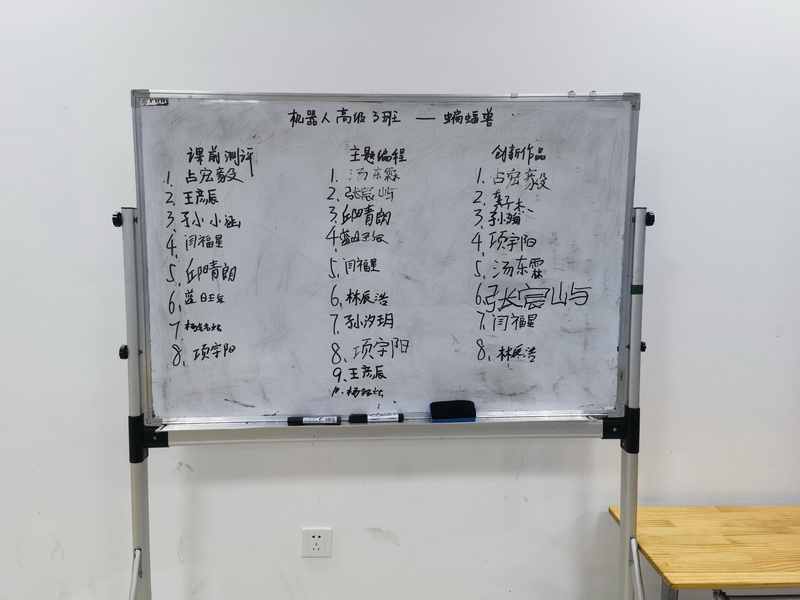 机器人高级3班 — 蝙蝠兽
课前测评
1、占宏毅
2、王彦辰
3、孙小小涵
4、闫福星
5、邱晴朗
6、蓝
7、杨
8、项宇阳
主题编程
1、汤东霖
2、张宸屿
3、邱晴朗
4、蓝
5、闫福星
6、林辰浩
7、孙汐玥
8、项宇阳
9、王彦辰
10、杨
创新作品
1、占宏毅
2、龚子杰
3、孙
4、项宇阳
5、汤东霖
6、张宸屿
7、闫福星
8、林辰浩